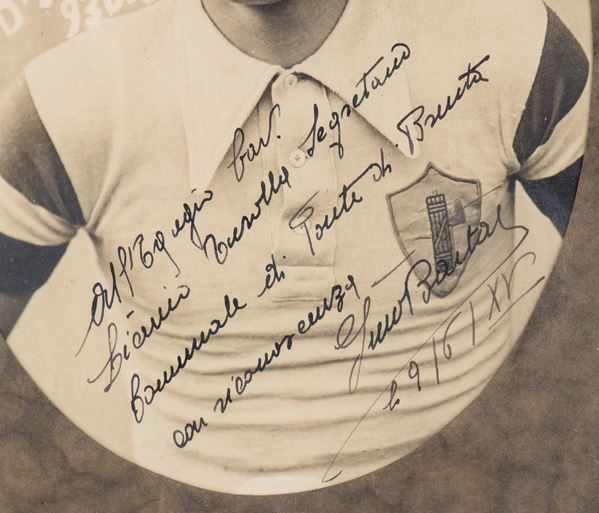 All'Egregio Cav.
Licinio Turolla Segretario
Comunale di Ponte di Brenta
con riconoscenza
Gino Bartali
29/6/XV